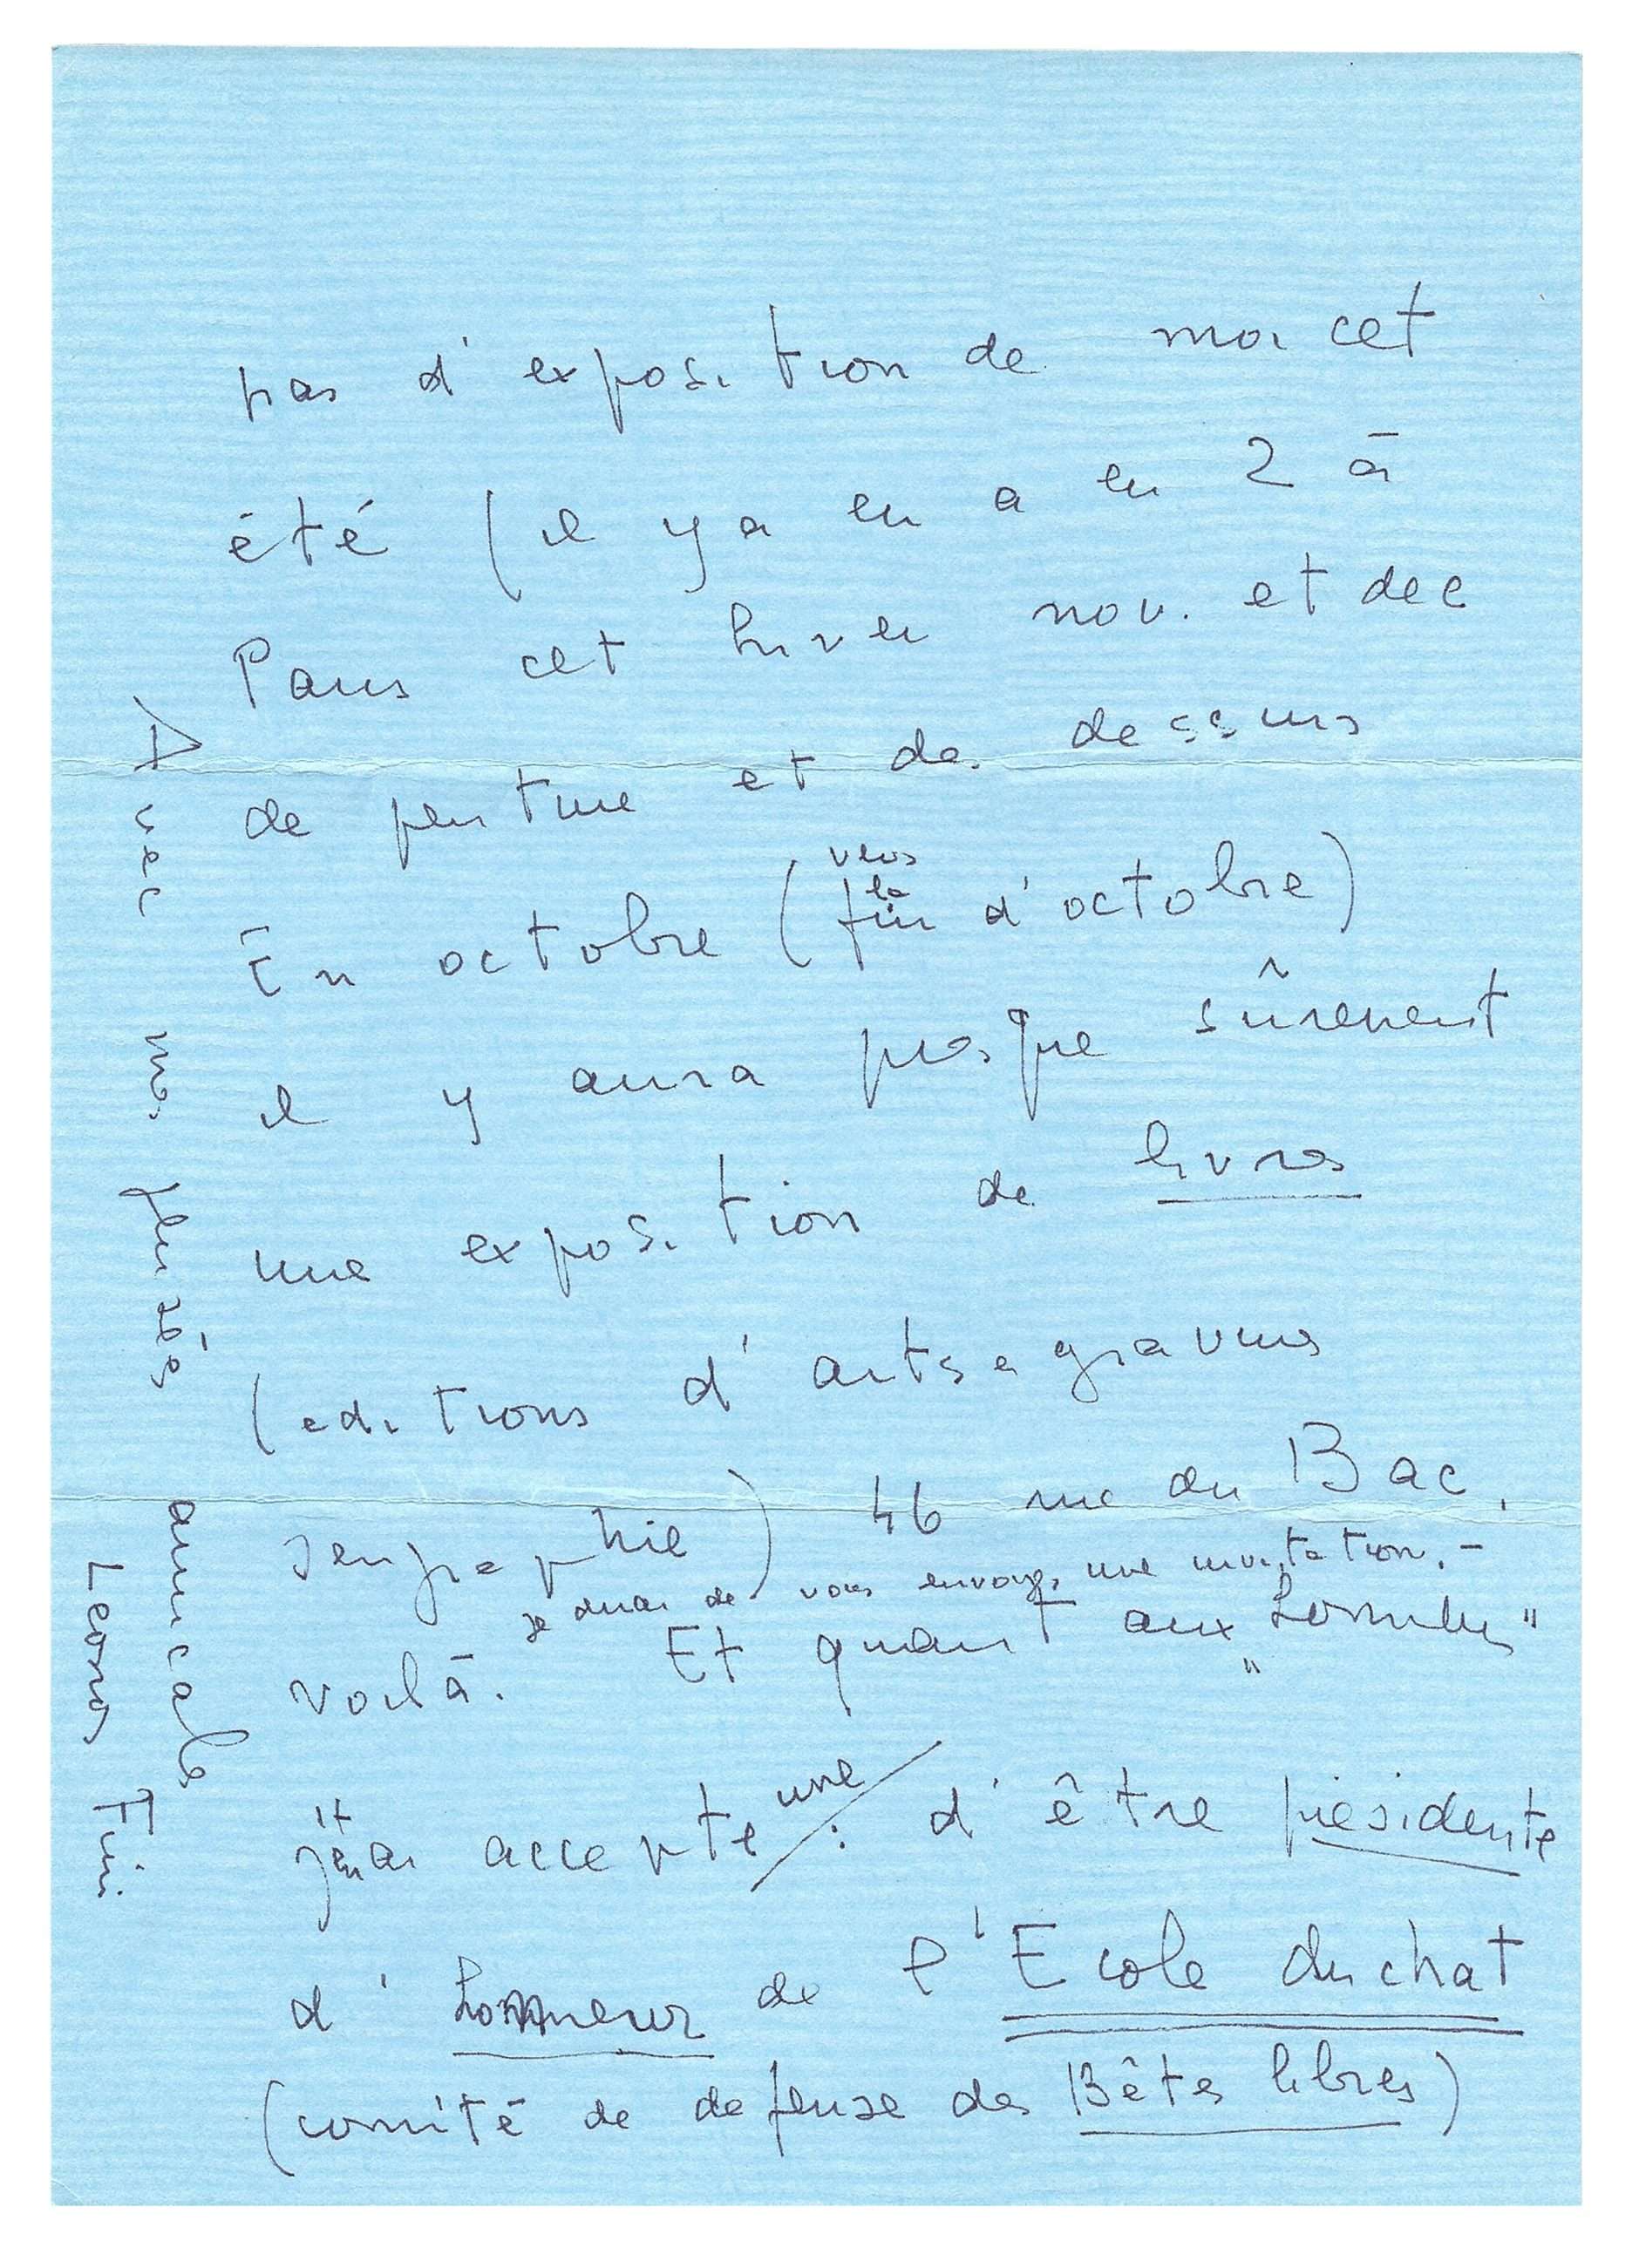 pas d'exposition de moi cet
été (il y a en a eu 2 à
Paris cet hiver nov. et dec
de peinture et de dessins
En octobre (vers la fin d'octobre)
il y aura presque sûrement
une exposition de livres
(editions d'arts e gravures
serigraphie) 46 rue du Bac.
je dirai de vous envoyer une invitation.-
voilà. Et quant aux "
j'ai accepté une : d'être présidente
d'honneur de l'Ecole du chat
(comité de defense des Bêtes libres)
Avec mes pensées
amicales
Leonor Fini